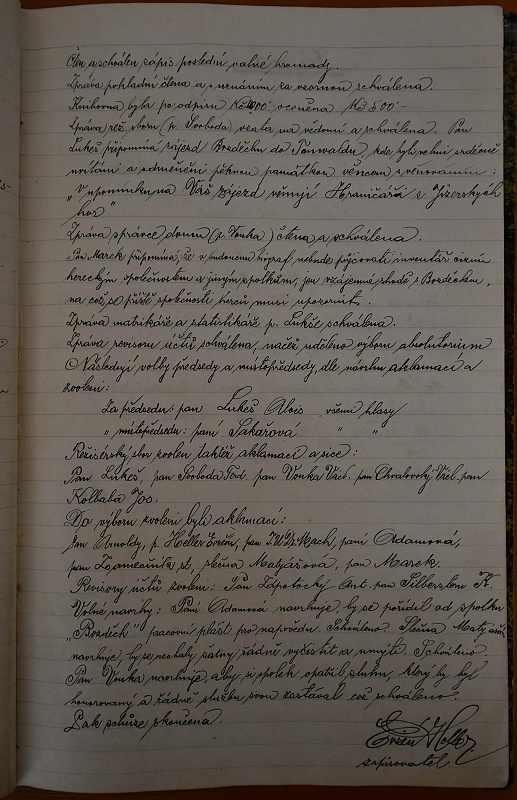 Čten a schválen zápis poslední valné hromady.
Zpráva pokladní čtena a s uznáním za vzornou schválena.
Knihovna byla po odpisu Kč 1000·- oceněna Kč 500·-
Zpráva rež. sboru (p. Svoboda) vzata na vědomí a schválena. Pan
Lukeš připomíná zájezd Bozděchu do Tanwaldu, kde byli velmi srdečně
uvítáni a odměněni pěknou památkou věncem s věnováním:
„V upomínku na Váš zájezd věnují Hraničáři z Jizerských
hor"
Zpráva správce domu (p. Vonka) čtena a schválena.
Pan Marek připomíná, že v budoucnu biograf nebude půjčovati inventář cizím
hereckým společnostem a jiným spolkům, jen vzájemné shodě s Bozděchem,
na což se příště společnosti herců musí upozorniti.
Zpráva matrikáře a statistikáře p. Lukše schválena.
Zpráva revisorů účtů schválena, načež uděleno výboru absolutorium
Následují volby předsedy a místopředsedy, dle návrhu aklamací a
zvoleni:
Za předsedu: pan Lukeš Alois všemi hlasy
„ místopředsedu: paní Sakařová „ „
Režisérský sbor zvolen taktéž aklamací a sice:
Pan Lukeš, pan Svoboda Tod. pan Vonka Václ. pan Chvalovský Václ. pan
Kolbaba Jos.
Do výboru zvoleni byli aklamací:
Pan Arnoldy, p. Heller Evžen, pan J.U.Dr. Mach, paní Adamová,
pan Zámečník st, slečna Matyášova, pan Marek.
Revisory účtů zvoleni: Pan Zápotocký Ant. pan Silberstein K.
Volné návrhy: Paní Adamová navrhuje, by se pořídil od spolku
„Bozděch" pracovní plášť pro napovědu. Schváleno. Slečna Matyášová
navrhuje, by se nechaly šatny řádně vyčistit a umýti. Schváleno.
Pan Vonka navrhuje, aby si spolek opatřil sluhu, který by byl
honorovaný a řádně službu svou zastával což schváleno.
Pak schůze skončena.
Evžen Heller
zapisovatel